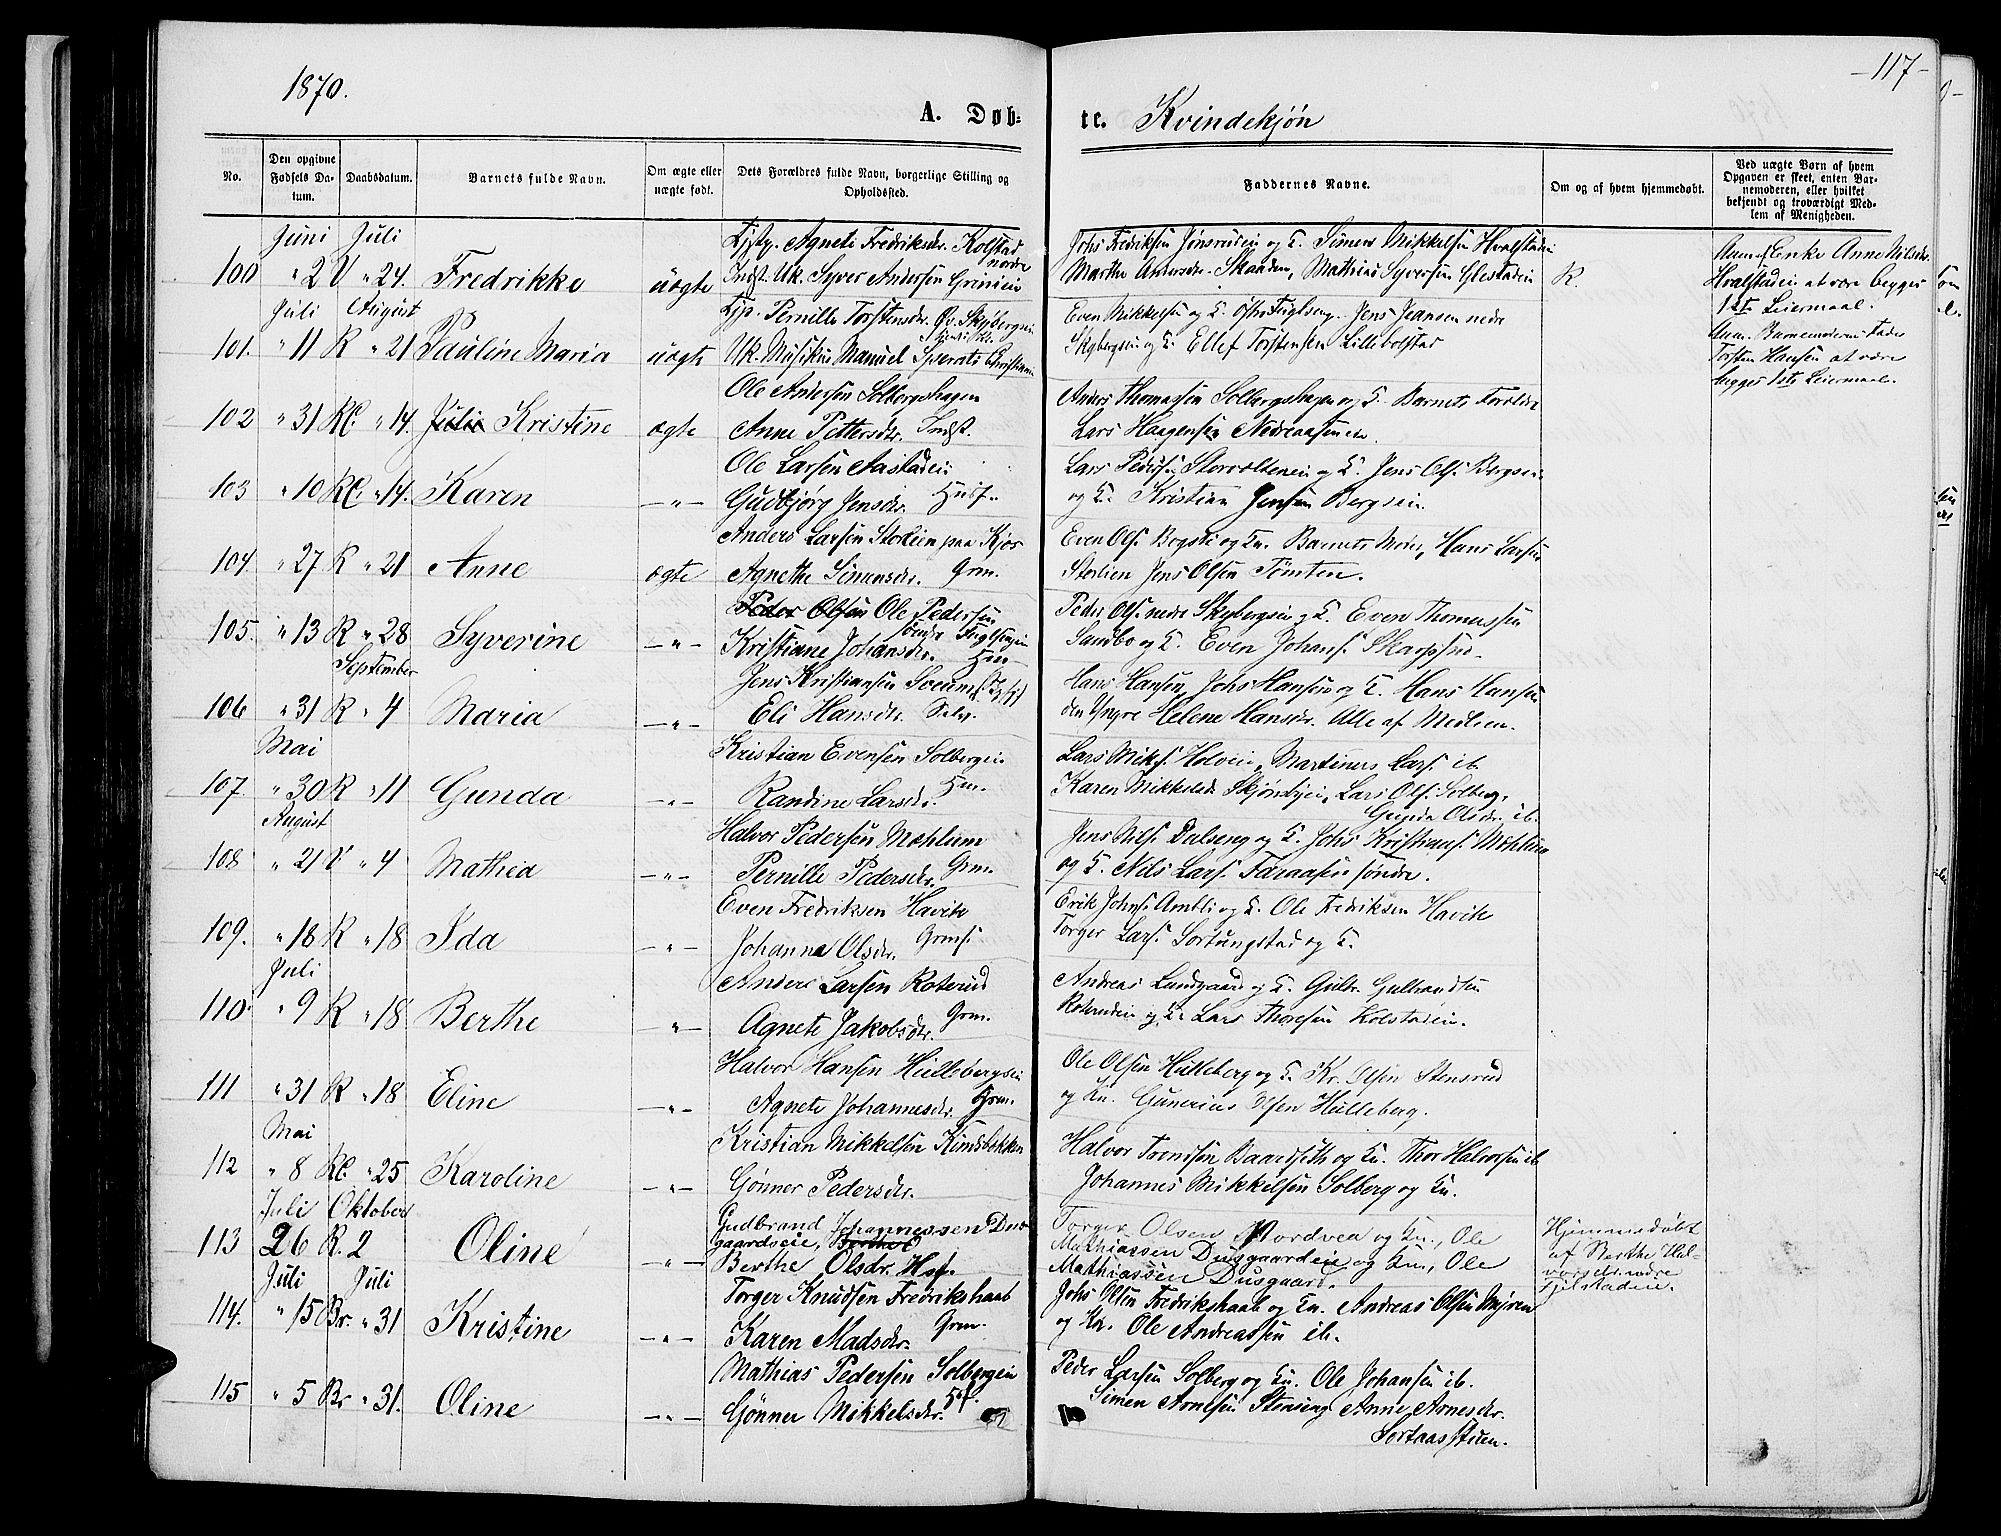 1870.
-117-
A. Døb-
te. Kvindekjøn
No.
Den opgivne Fødsels Datum.
Daabsdatum.
Barnets fulde Navn.
Om ægte eller uægte født.
Dets Forældres fulde Navn, borgerlige Stilling og Opholdssted.
Faddernes Navne.
Om og af hvem hjemmedøbt.
Ved uægte Børn af hvem Opgaven er skeet, enten Barnemoderen, eller hvilket bekjendt og troværdigt Medlem af Menigheden.
Juni Juli
100 " 2 V " 24. Fredrikke uægte
Agnete Fredriksdr. Kolstad nordre
Uk. Syver Andersen Grinien
Johs Fredriksen og K. Simen Mikkelsen Hvalstadein
Marthe Andersdr. Skaaden, Mathias Syversen
R.
Enke Anne Nilsdr.
Hvalstadein at være begges
1ste Leiermaal.
Juli August
101. " 11 R " 21 Pauline Maria uægte
Pernille Torstensdr. Øv. Skybergsei
Uk. Musikus Manuel
Even Mikkelsen og K. Jens Jensen nedr
Skybergsei og K. Ellef Torstensen Lillebolstad
Barnemoderens Fader
Torsten Hansen at være
begges 1ste Leiermaal.
102 " 31 Kl. " 14. Julie Kristine ægte
Ole Andersen Solbergshagen
Anne Pettersdr. Indst.
Anders Thomassen Solbergshagen og K. Barnets Forældre
Lars Haagensen
103 " 10 Kl. " 14. Karen — " —
Ole Larsen Aastadein
Gudbjørg Jensdr. Husf.
Lars Pedersen og K. Jens Ols. Bergsei
og K. Kristian Jensen Bergsein.
104. " 27. R " 21 Anne ægte
Anders Larsen Storlien paa Kjos
Agnethe Simensdr. Grm.
Even Ols. Bogsti og Kn. Barnets Moder, Hans Larsen
Storlien Jens Olsen Tømten.
105. " 13 R " 28 Syverine — " —
Peder Olsen Ole Pedersen
Kristiane Johansdr. søndre Fuglsengein
Hm
Peder Ols. nedre Skybergsein og K. Even Thomassen
Sandbo og K. Even Johans.
September
106 " 31 R " 4 Maria — " —
Jens Kristiansen Sveum
Eli Hansdr. Selv.
Hans Hansen, Johs Hansen og K. Hans Hansen
den Yngre Helene Hansdr. Alle af Medlien.
Mai
107 " 30 R " 11 Gunda — " —
Kristian Evensen Solbergein
Randine Larsdr. Hm.
Lars Miks. Holvein, Martinus Lars. ib.
Karen Mikkelsdr Skjønsbyein, Lars Ols. Solberg,
Gunda Olsdr. ib.
August
108 " 21 V " 4 Mathea — " —
Halvor Pedersen Mæhlum
Pernille Pedersdr. Grm.
Jens Nils. Dalseng og K. Johs Kristians. Mæhlum
og K. Nils Lars. Faraasen søndre.
109. " 18 R " 18 Ida — " —
Even Fredriksen Havik
Johanna Olsdr. Grmf.
Erik Johns. Ambli og K. Ole Fredriksen Havik
Torger Lars. Sortungstad og K.
Juli
110. " 9 R " 18 Berthe — " —
Anders Larsen Roterud
Agnete Jakobsdr. Grm.
Andreas Lundgaard og K. Gulbr. Gulbrandsen
Roterudein og K. Lars Thoresen Kolstadein.
111 " 31 R " 18 Eline — " —
Halvor Hansen Hullebergsein
Agnete Johannesdr. Hm.
Ole Olsen Hulleberg og K. Kr. Olsen Stensrud
og Kn. Gunerius Olsen Hulleberg.
Mai
112 " 8 Kl. " 25 Karoline — " —
Kristian Mikkelsen Kindsbakken
Gønner Pedersdr.
Halvor Svendsen Baardseth og Kn. Thor Halvorsen ib
Johannes Mikkelsen Solberg og Kn.
Juli Oktober
113 26 R. 2 Oline — " —
Gudbrand Johannessen Dus-
gaardseie, Berthe O
Berthe Olsdr. Hsf.
Torger Olsen Nordvea og Kn., Ole
Mathiassen Dusgaardein og Kn., Ole
Mathiassen Dusgaard.
Hjemmedøbt
af Berthe Hal-
vorsdr. nedre
Fjelstadein.
Juli Juli
114. " 15 Br. " 31 Kristine — " —
Torger Knudsen Fredrikshaab
Karen Madsdr. Grm.
Johs Olsen Fredrikshaab og Kn. Andreas Olsen Myren
og Kn. Ole Andreassen ib.
115 " 5 Br " 31. Oline — " —
Mathias Pedersen Solbergein
Gønner Mikkelsdr.
Peder Larsen Solberg og Kn. Ole Johansen ib.
Simen Arnesen Stenseng Anne Arnesdr.
Sortaasstuen.